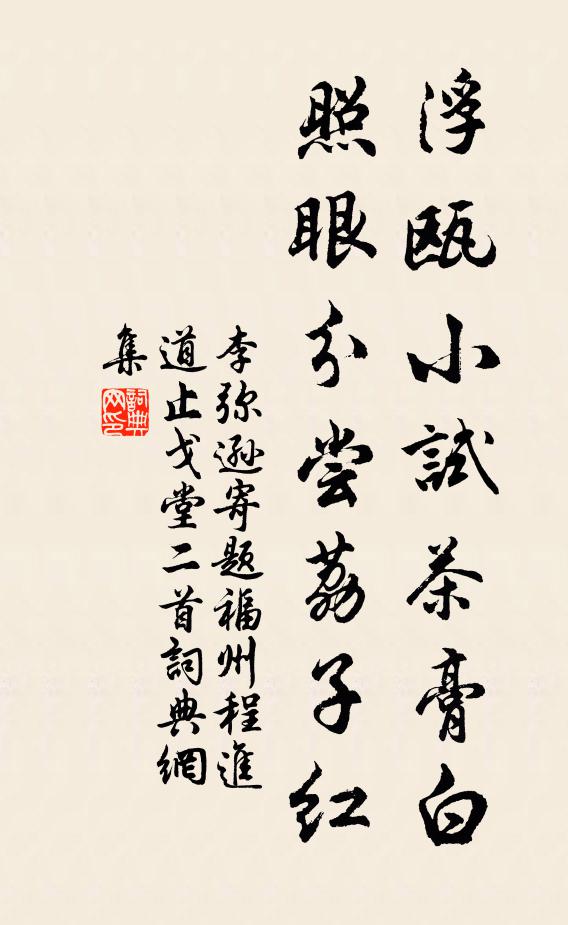 浮瓯小試茶膏白
照眼分尝荔子红
李弥遜寄题福州程進
道止戈堂二首詞典網
集
詞典网印